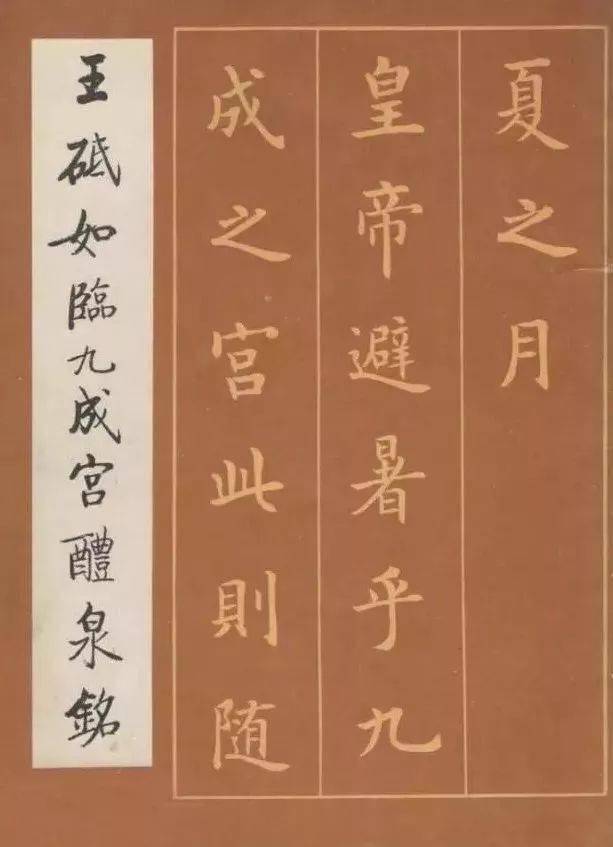 夏之月
皇帝避暑乎九
成之宫此則随
王砥如臨九成宫醴泉銘